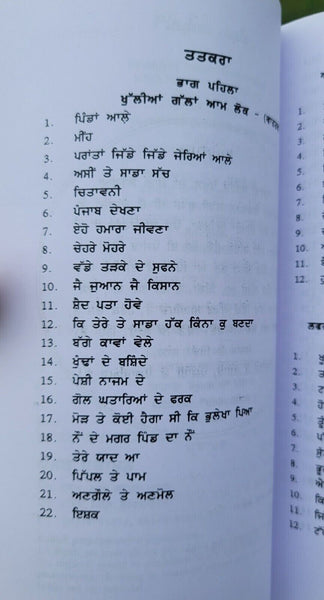 ਤਤਕਰਾ
ਭਾਗ ਪਹਿਲਾ
ਖੁੱਲੀਆਂ ਗੱਲਾਂ ਆਮ ਲੋਕ -
1. ਪਿੰਡਾਂ ਆਲੇ
2. ਮੀਂਹ
3. ਪਰਾਂਤਾਂ ਜਿੱਡੇ ਜਿੱਡੇ ਜੇਰਿਆਂ ਆਲੇ
4. ਅਸੀਂ ਤੇ ਸਾਡਾ ਸੱਚ
5. ਚਿਤਾਵਨੀ
6. ਪੰਜਾਬ ਦੇਖਣਾ
7. ਏਹੋ ਹਮਾਰਾ ਜੀਵਣਾ
8. ਚੇਹਰੇ ਮੋਹਰੇ
9. ਵੱਡੇ ਤੜਕੇ ਦੇ ਸੁਫਨੇ
10. ਜੈ ਜੁਆਨ ਜੈ ਕਿਸਾਨ
11. ਸ਼ੈਦ ਪਤਾ ਹੋਵੇ
12. ਕਿ ਤੇਰੇ ਤੇ ਸਾਡਾ ਹੱਕ ਕਿੰਨਾ ਕੁ ਬਣਦਾ
13. ਬੱਗੇ ਕਾਵਾਂ ਵੇਲੇ
14. ਖੁੰਢਾਂ ਦੇ ਬਸ਼ਿੰਦੇ
15. ਪੇਸ਼ੀ ਨਾਜਮ ਦੇ
16. ਗੋਲ ਘਤਾਰਿਆਂ ਦੇ ਫਰਕ
17. ਮੋੜ ਤੇ ਕੋਈ ਹੈਗਾ ਸੀ ਕਿ ਭੁਲੇਖਾ ਪਿਆ
18. ਨੌਂ ਦੇ ਮਗਰ ਪਿੰਡ ਦਾ ਨੌਂ
19. ਤੇਰੇ ਯਾਦ ਆ
20. ਪਿੱਪਲ ਤੇ ਪਾਮ
21. ਅਣਗੌਲੇ ਤੇ ਅਣਮੋਲ
22. ਇਸ਼ਕ